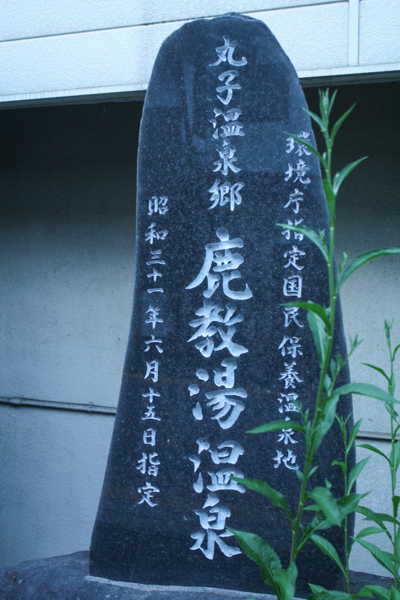 環境庁指定国民保養温泉地
丸子温泉郷 鹿教湯温泉
昭和三十一年六月十五日指定